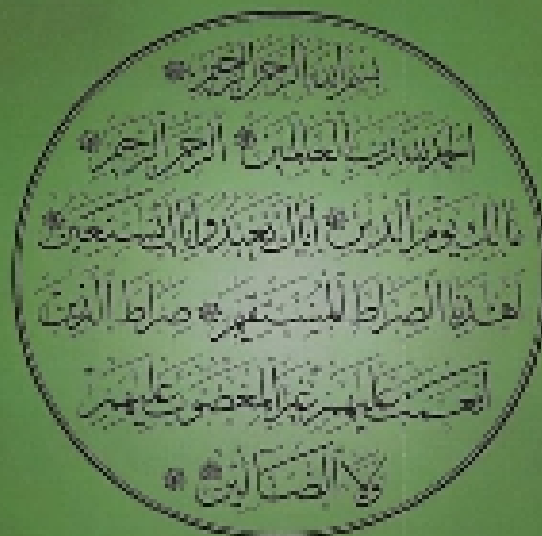 بسم الله الرحمن الرحيم
الحمد لله رب العالمين الرحمن الرحيم
مالك يوم الدين اياك نعبد واياك نستعين
اهدنا الصراط المستقيم صراط الذين
انعمت عليهم غير المغضوب عليهم
ولا الضالين